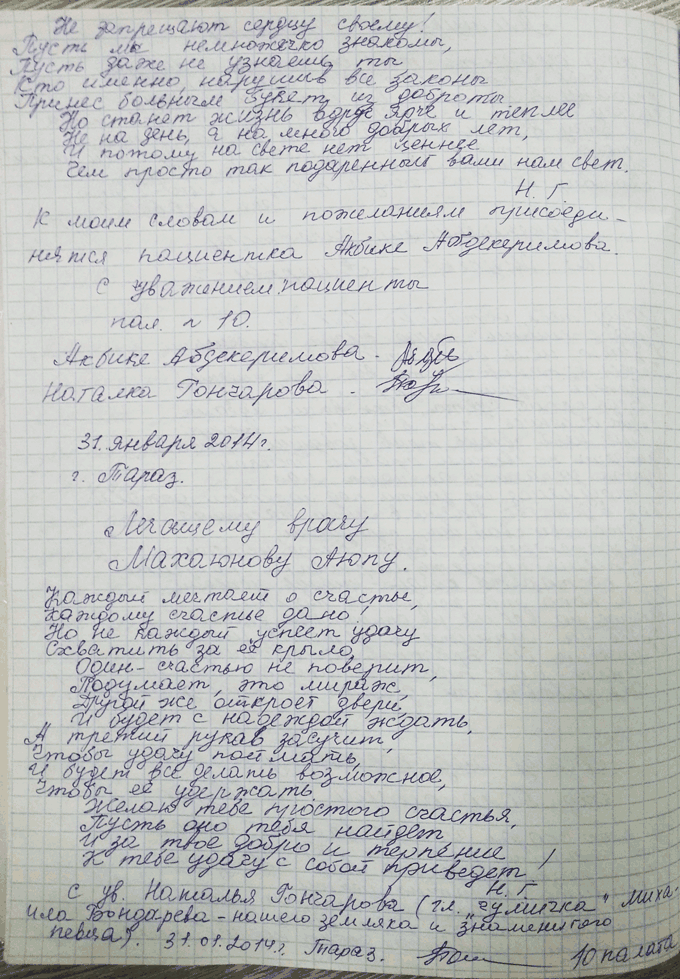 Не запрещают сердцу своему!
Пусть мы немножечко знакомы,
Пусть даже не узнаешь ты
Кто именно, нарушив все законы
Принес больным букет из доброты
Но станет жизнь вдруг ярче и теплее
Не на день, а на много добрых лет,
И потому на свете нет ценнее
Чем просто так подаренный вами нам свет.
Н. Г.
К моим словам и пожеланиям присоеди-
няется пациентка Акбике Абдекеримова.
С уважением: пациенты
пал. № 10.
Акбике Абдекеримова -
Наталка Гончарова -
31. января 2014г.
г. Тараз.
Лечащему врачу
Махаюнову Аюпу.
Каждый мечтает о счастье,
Каждому счастье дано!
Но не каждый успеет удачу
Схватить за её крыло,
Один - счастью не поверит,
Подумает, это мираж,
Другой же откроет двери
И будет с надеждой ждать,
А третий рукав засучит,
Чтобы удачу поймать,
И будет все делать возможное,
Чтобы её удержать
Желаю тебе простого счастья,
Пусть оно тебя найдет
И за твое добро и терпение
К тебе удачу с собой приведет!
Н. Г.
С ув. Наталья Гончарова (гл. "чумичка" Миха-
ила Бондарева - нашего земляка и знаменитого
певца). 31.01.2014г. Тараз. 10 палата